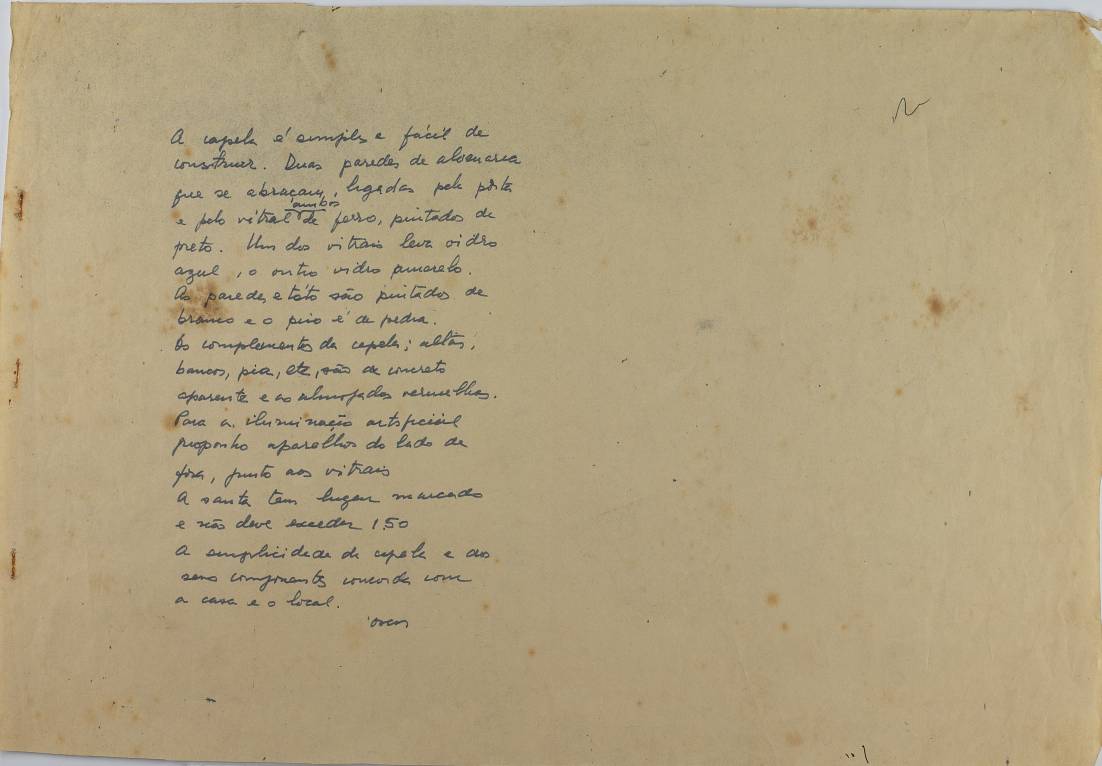 A capela é simples e fácil de
construir. Duas paredes de alvenaria
que se abraçam, ligadas pela porta
ambos
e pelo vitral de ferro, pintados de
preto. Um dos vitrais leva vidro
azul, o outro vidro amarelo.
As paredes e této são pintados de
branco e o piso é de pedra.
Os complementos da capela; altar,
bancos, pia, etc, são de concreto
aparente e as almofadas vermelhas.
Para a iluminação artificial
proponho aparelhos do lado de
fora, junto aos vitrais
A santa tem lugar marcado
e não deve exceder 1.50
A simplicidade da capela e dos
seus componentes concorda com
a casa e o local.
oscar